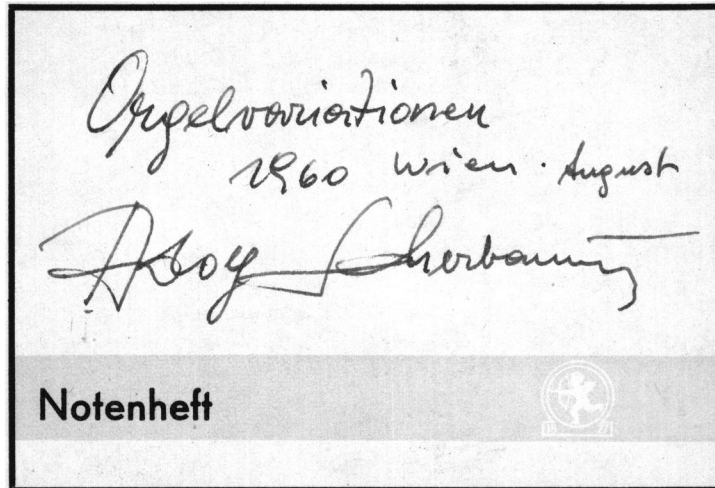 Orgelvariationen
1960 Wien. August
Adolf Scherbaum
Notenheft